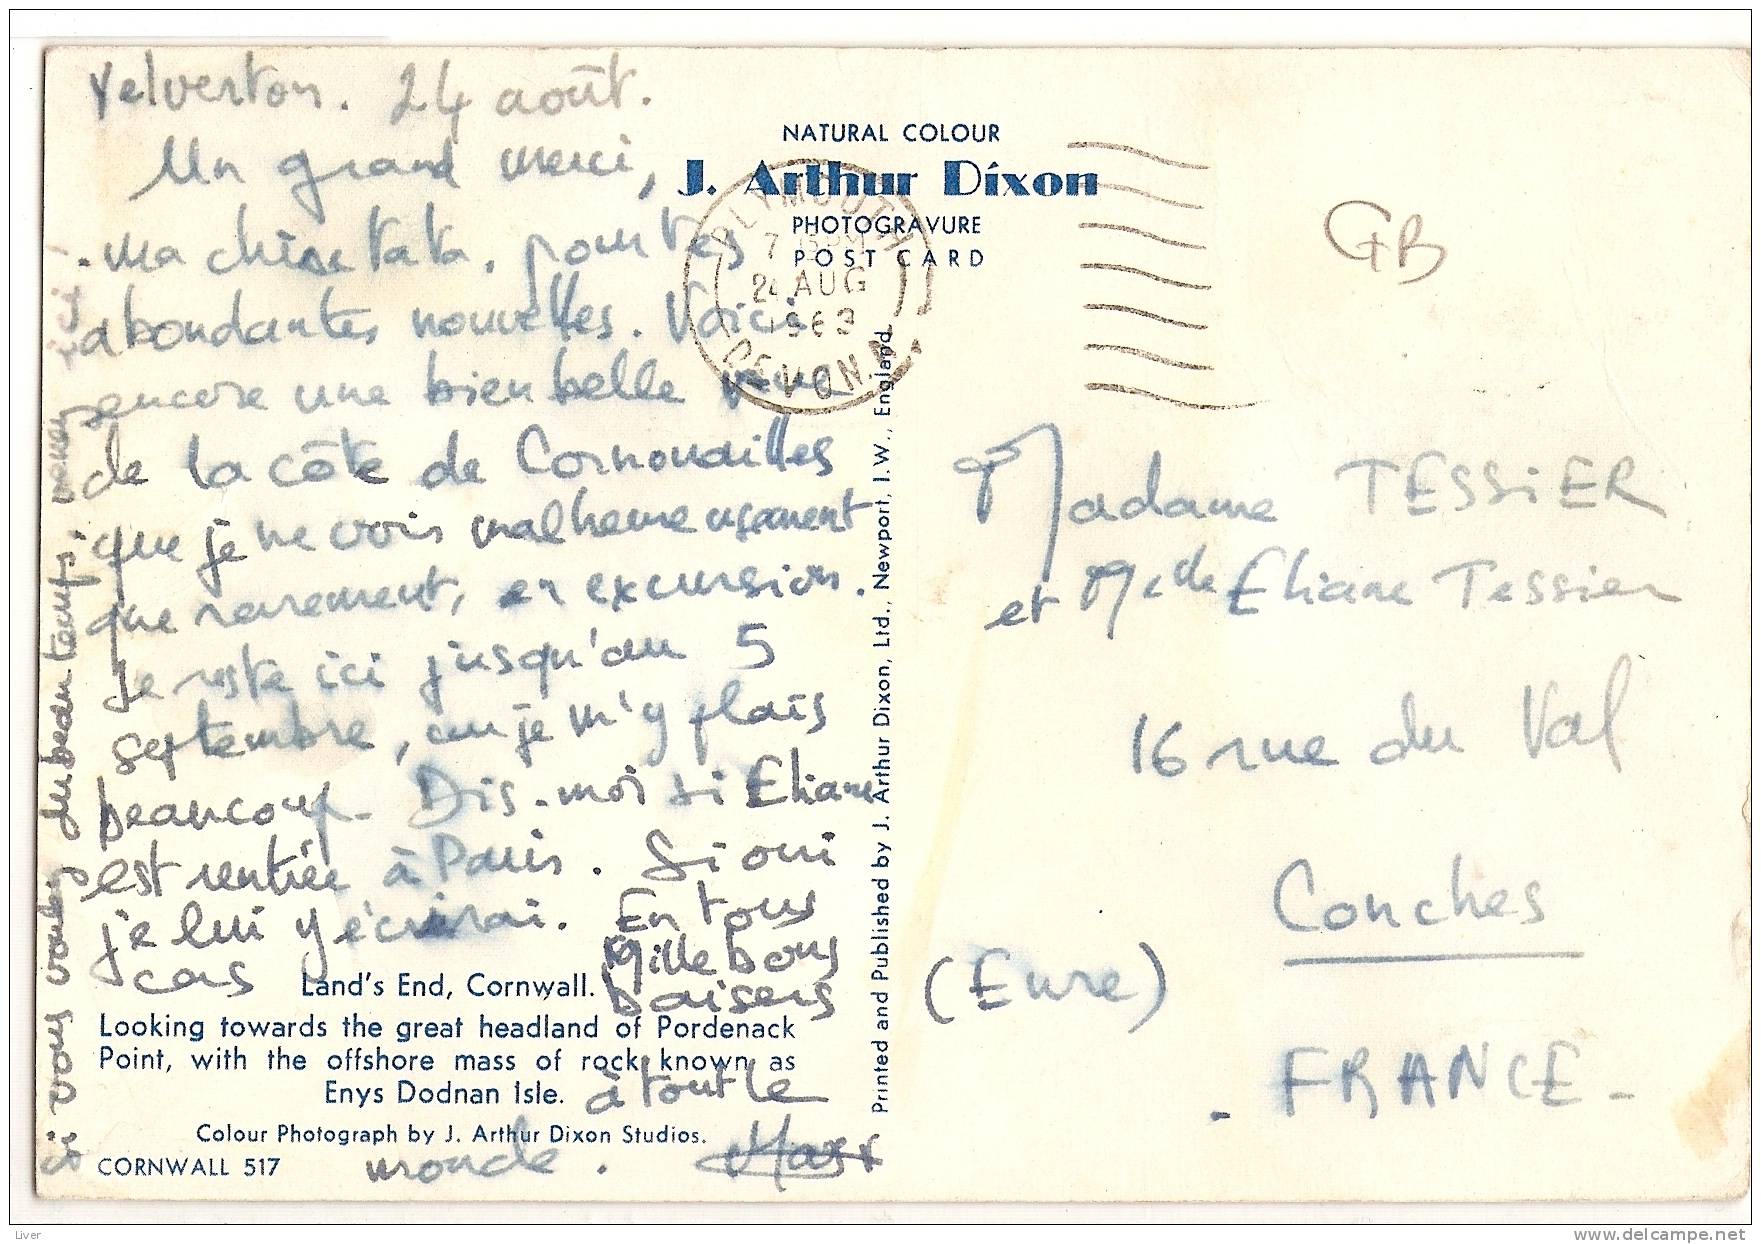 Yelverton. 24 août.
Un grand merci,
ma chère tata, pour tes
abondantes nouvelles. Voici
encore une bien belle vue
de la côte de Cornouailles
que je ne vois malheureusement
que rarement, en excursion.
Je reste ici jusqu'au 5
septembre, car je m'y plais
beaucoup. Dis-moi si Eliane
est rentrée à Paris. Si oui
je lui y écrirai. En tous
cas Mille bons
baisers
à tout le
monde.
Si vous voulez du beau temps, venez ici!
Land's End, Cornwall.
Looking towards the great headland of Pordenack
Point, with the offshore mass of rock known as
Enys Dodnan Isle.
Colour Photograph by J. Arthur Dixon Studios.
CORNWALL 517
NATURAL COLOUR
J. Arthur Dixon
PHOTOGRAVURE
POST CARD
PLYMOUTH
7 15 PM
24 AUG
1963
DEVON
Printed and Published by J. Arthur Dixon, Ltd., Newport, I.W., England.
GB
Madame TESSIER
et Melle Eliane Tessier
16 rue du Val
Conches
(Eure)
- FRANCE -
Liver
www.delcampe.net